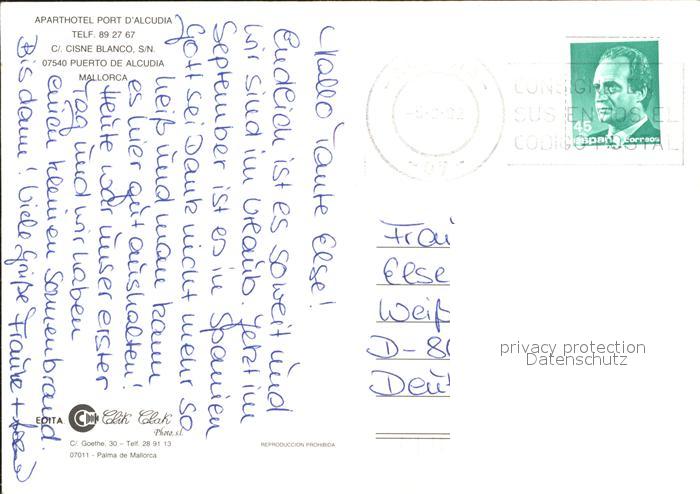 APARTHOTEL PORT D'ALCUDIA
TELF. 89 27 67
C/. CISNE BLANCO, S/N.
07540 PUERTO DE ALCUDIA
MALLORCA
Hallo Tante Else!
Endlich ist es soweit und
wir sind im Urlaub. Jetzt im
September ist es in Spanien
Gott sei Dank nicht mehr so
heiß und man kann
es hier gut aushalten!
Heute war unser erster
Tag und wir haben
einen kleinen Sonnenbrand.
Bis dann! Viele Grüße Frauke +
CONSIGNE EN
SUS ENVIOS EL
CODIGO POSTAL
45
España correos
Frau
Else
Weiß
D-8
Deut
privacy protection
Datenschutz
EDITA
Clik Clak
Photo, s.l.
C/. Goethe, 30 – Telf. 28 91 13
07011 - Palma de Mallorca
REPRODUCCION PROHIBIDA